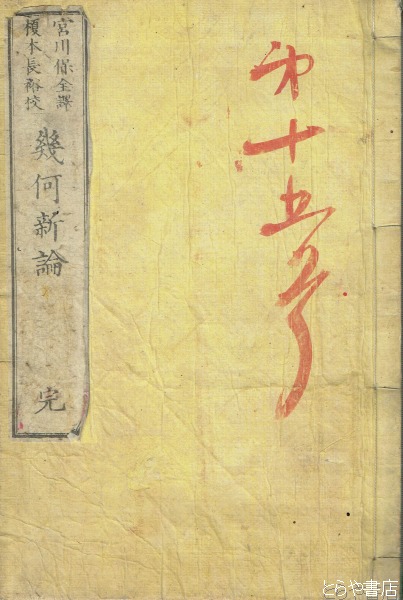 第十五号
宮川保全譯
榎本長裕校
幾何新論 完
とらや書店